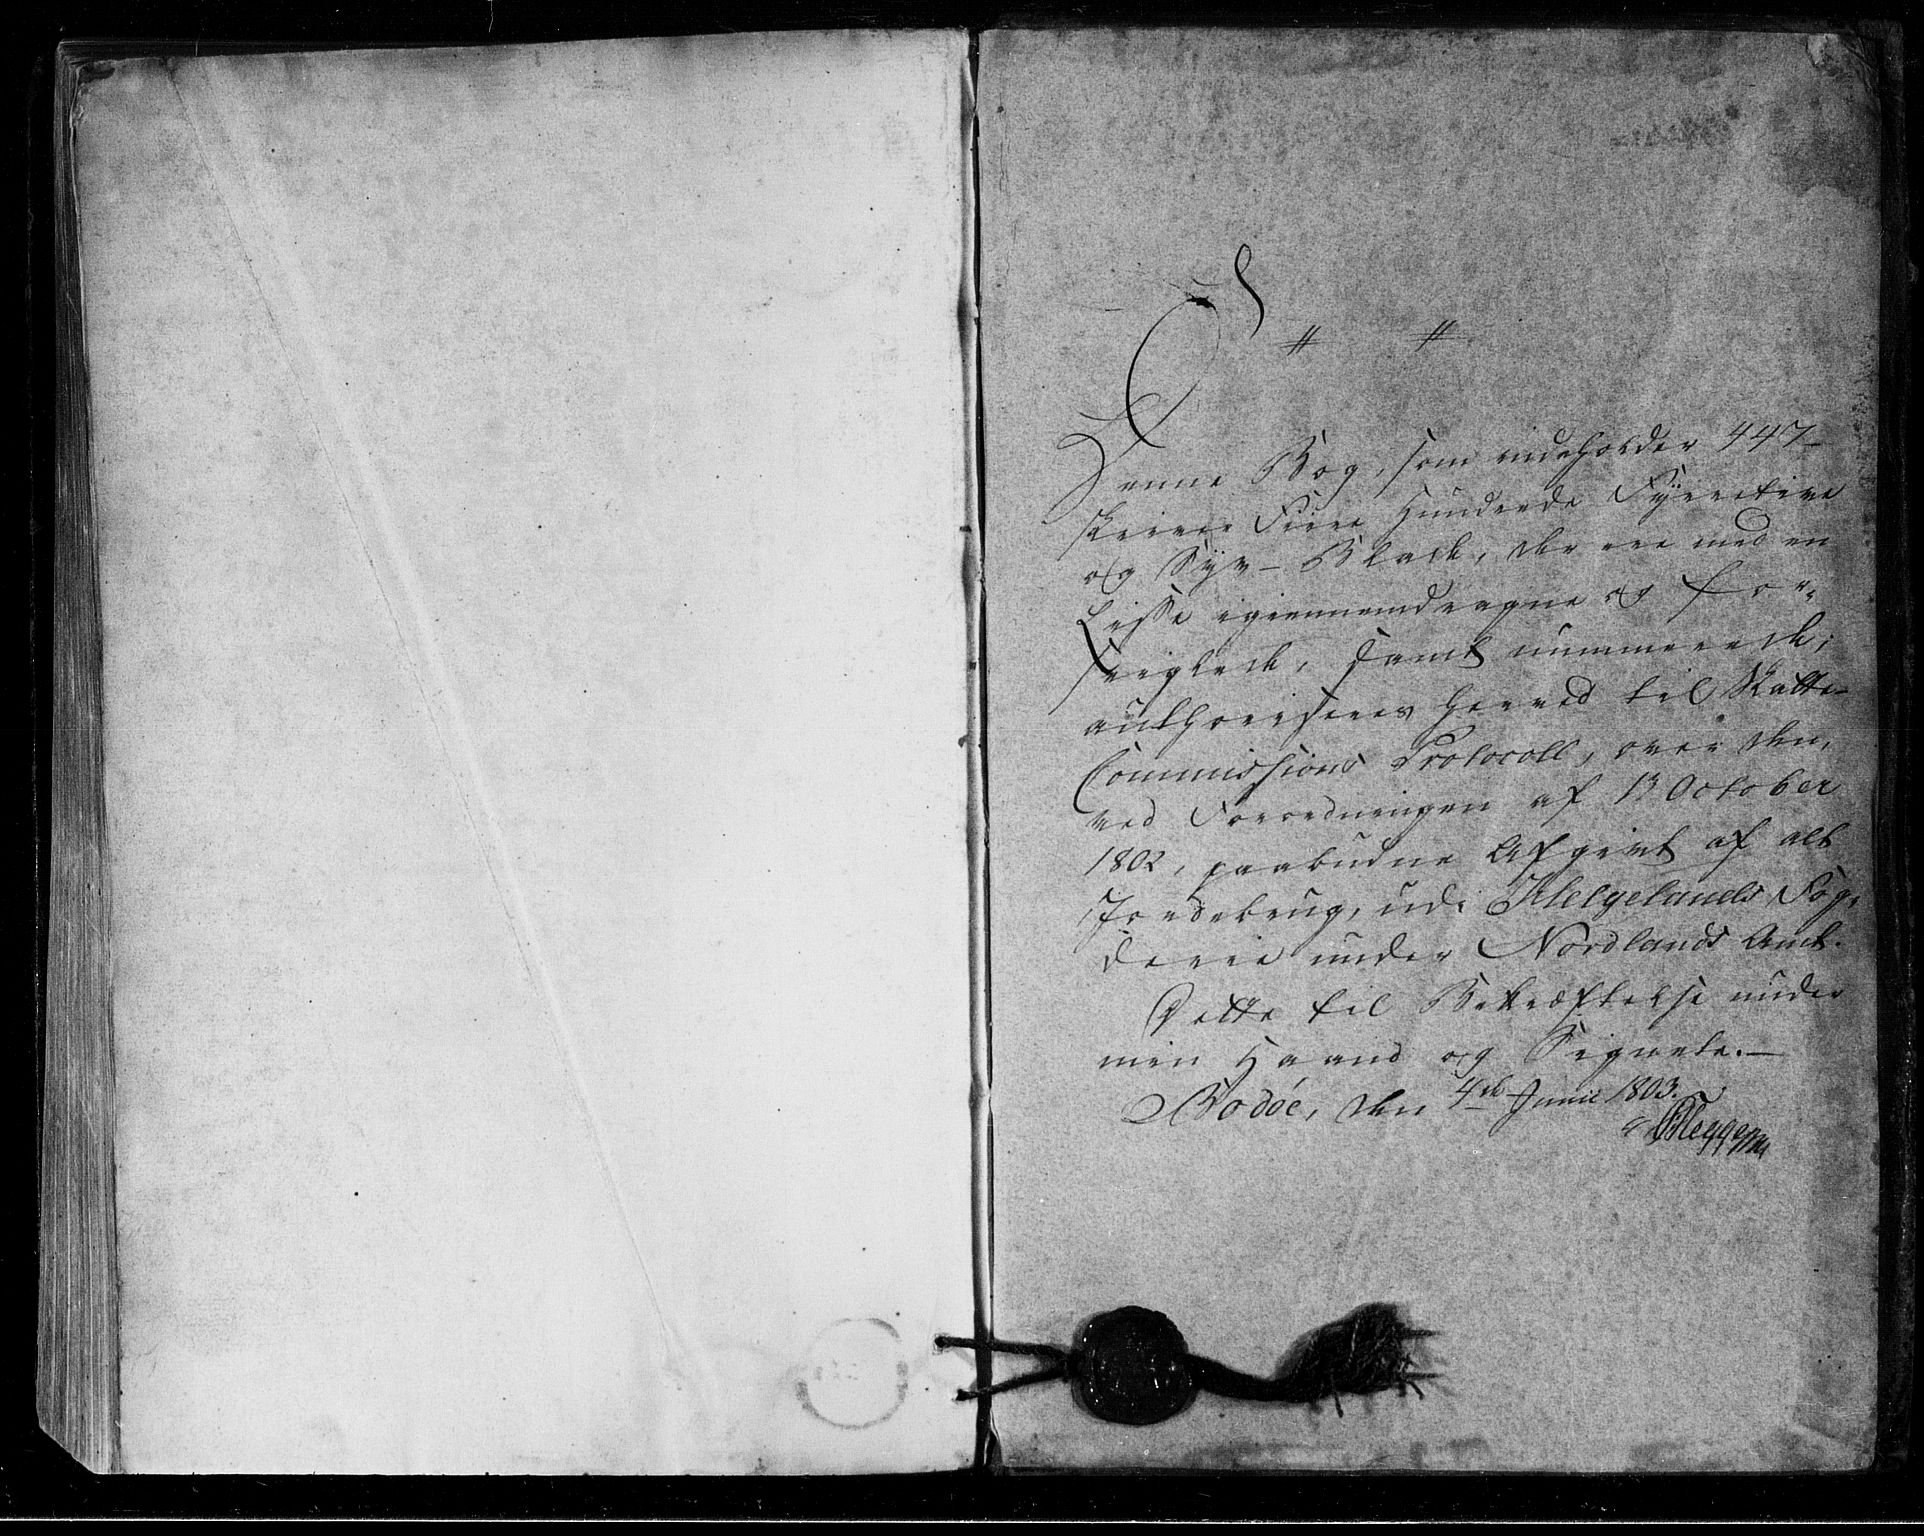 Denne Bog, som indeholder 447
skriver Fiire Hundrede Fÿrretive
og Sÿv Blade, der ere med en
Lisse igiennemdragne og for-
seiglede, samt nummerede,
authoriseres herved til Skatte-
Commissions Protocoll, over den,
ved Forordningen af 1 October
1802, paabudne Afgivt af alt
Jordebrug, udi Helgelands Fog-
derie under Nordlands Amt.
Dette til Bekræftelse under
min Haand og Signete.
Bodöe, den 4de Junii 1803.